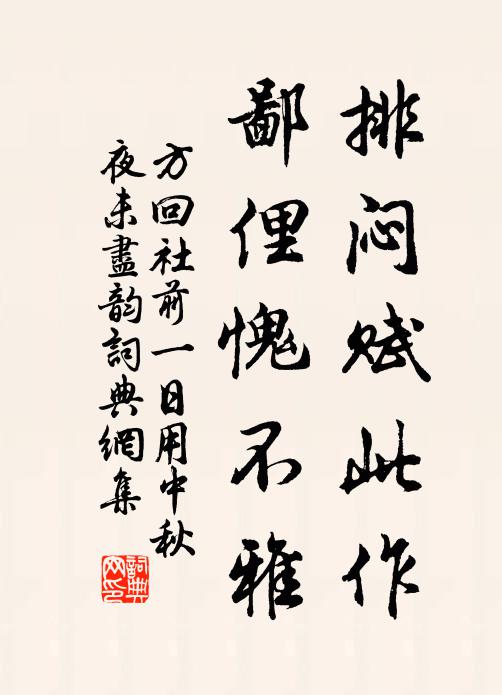 排闷赋此作
鄙俚愧不雅
方回社前一日用中秋
夜未盡韵詞典網集
詞典网印